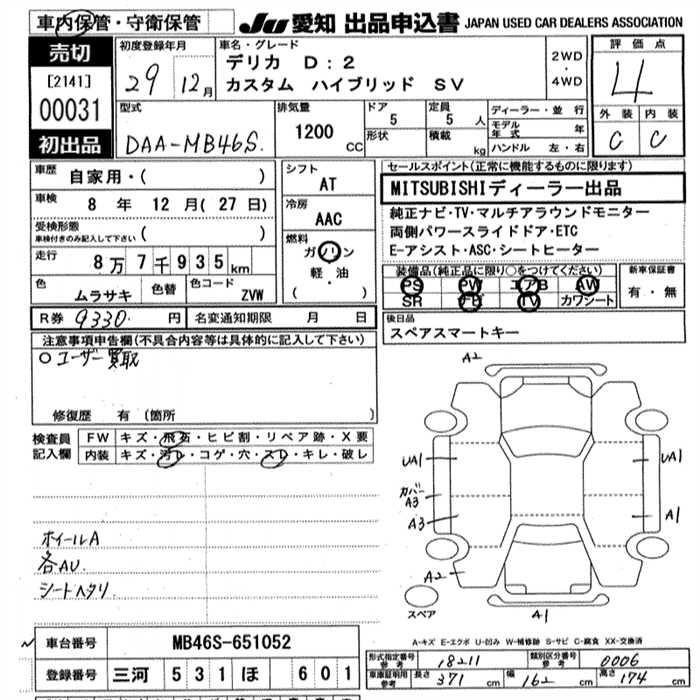 車内保管・守衛保管
JU 愛知 出品申込書 JAPAN USED CAR DEALERS ASSOCIATION
売切
[2141]
00031
初出品
初度登録年月
29 12月
車名・グレード
デリカ D:2
カスタム ハイブリッド SV
2WD
・
4WD
評価点
4
外装 内装
C C
型式
DAA-MB46S.
排気量
1200 CC
ドア
5
形状
定員
5 人
積載
kg
ディーラー・並行
モデル年式 年
ハンドル 左・右
車歴 自家用・( )
車検 8 年 12 月 ( 27 日)
受検形態
車検付きのみ記入して下さい ( )
走行 8万7千935km
色 ムラサキ 色替 色コード ZVW
シフト
AT
冷房
AAC
燃料
ガソリン
軽・油
( )
セールスポイント(正常に機能するものに限ります)
MITSUBISHIディーラー出品
純正ナビ・TV・マルチアラウンドモニター
両側パワースライドドア・ETC
E-アシスト・ASC・シートヒーター
装備品(純正品に限り○をつけてください)
PS PW エアB AW
SR ナビ TV カワシート
新車保証書
有・無
R券 9330 円 名変通知期限 月 日
後日品
スペアスマートキー
注意事項申告欄(不具合内容等は具体的に記入して下さい)
○ユーザー買取
修復歴 有 (箇所 )
検査員記入欄
FW キズ・飛石・ヒビ割・リペア跡・X要
内装 キズ・汚レ・コゲ・穴・スレ・キレ・破レ
ホイールA
各AU.
シートヘタリ
A2
UA1 UA1
カバー
A3
A3 A1
A2
スペア
A1
A-キズ E-エクボ U-凹み W-補修跡 S-サビ C-腐食 XX-交換済
車台番号 MB46S-651052
登録番号 三河 531 ほ 601
形式指定番号 参考 18211 類別区分番号 参考 0006
車庫証明用 参考 長さ 371 cm 幅 162 cm 高さ 174 cm